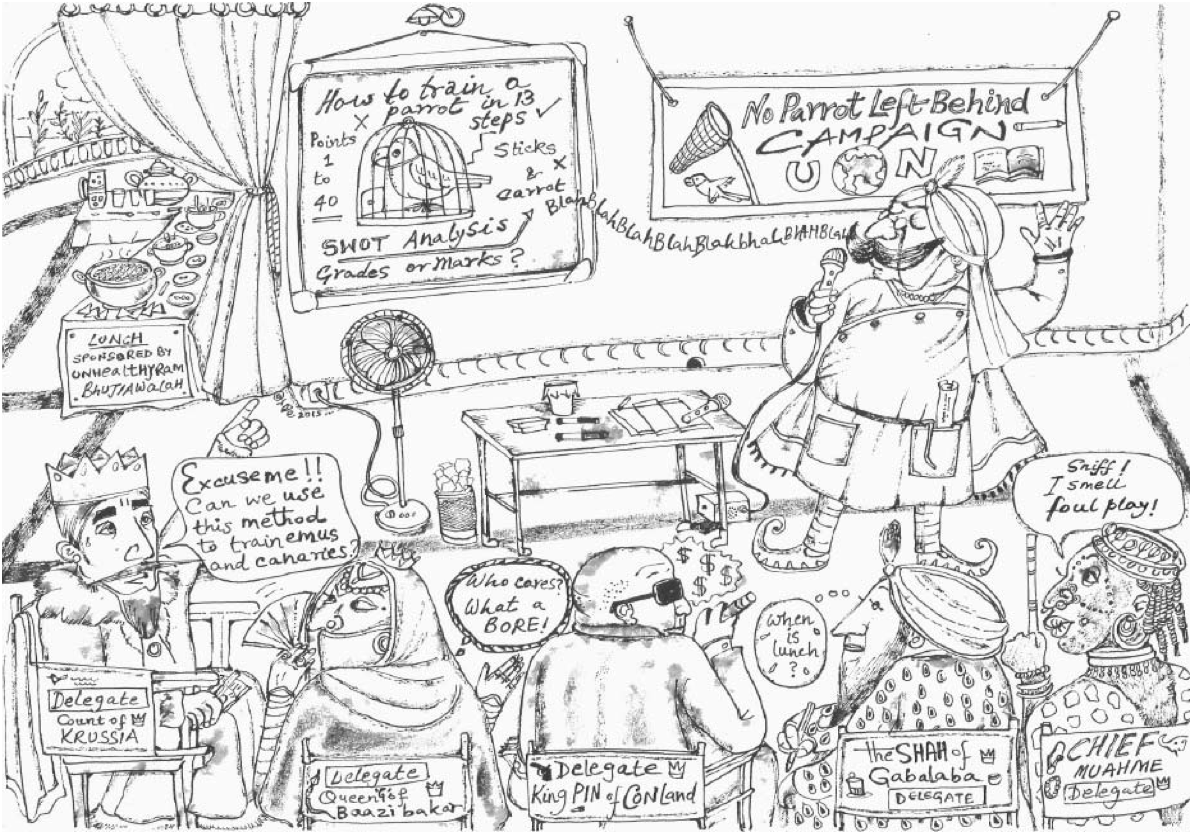 How to train a
parrot in 13
steps
Points
1
to
40
Sticks
&
carrot
SWOT Analysis
Grades or Marks?
No Parrot Left Behind
CAMPAIGN
U N
BlahBlahBlahBlahBlahblahBlAHBlah
LUNCH
SPONSORED BY
UNHEALTHYRAM
BHUJIAWALAH
2015
Excuse me!!
Can we use
this method
to train emus
and canaries?
Who cares?
What a
BORE!
$ $
$ $
$
When
is
lunch
?
Sniff!
I smell
foul play!
Delegate
Count of
KRUSSIA
Delegate
Queen of
Baazibakar
Delegate
King PIN of CONland
the SHAH of
Gabalaba
DELEGATE
CHIEF
MUAHME
Delegate